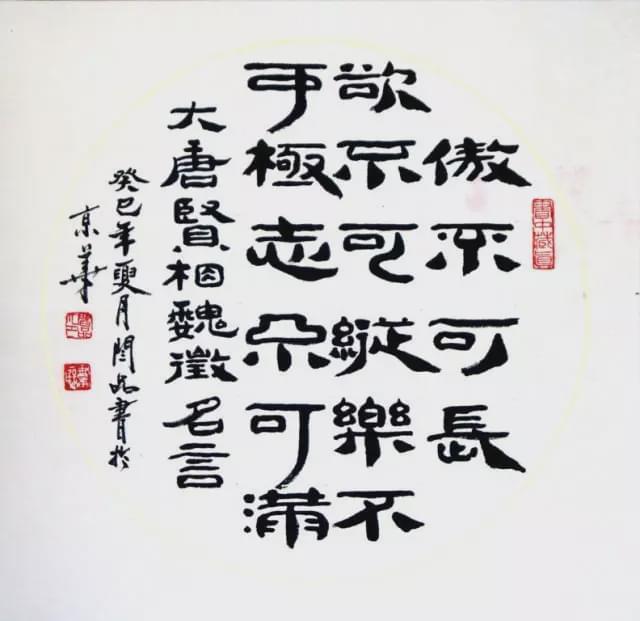 傲不可長
欲不可縱樂不
可極志不可滿
大唐賢相魏徵名言
癸巳年夏月閆書於
京華